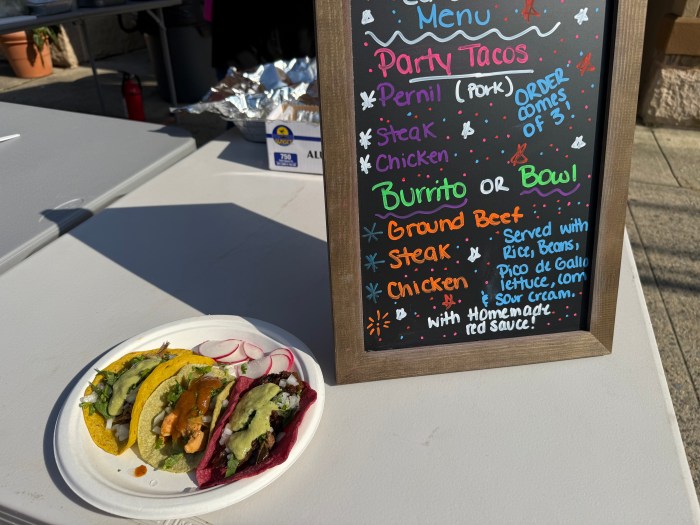 Menu
Party Tacos
Pernil (Pork)
Steak
Chicken
ORDER
comes
of 3!
Burrito OR Bowl
Ground Beef
Steak
Chicken
Served with
Rice, Beans,
Pico de Gallo
lettuce, corn
& Sour cream.
with Homemade
red sauce!
750